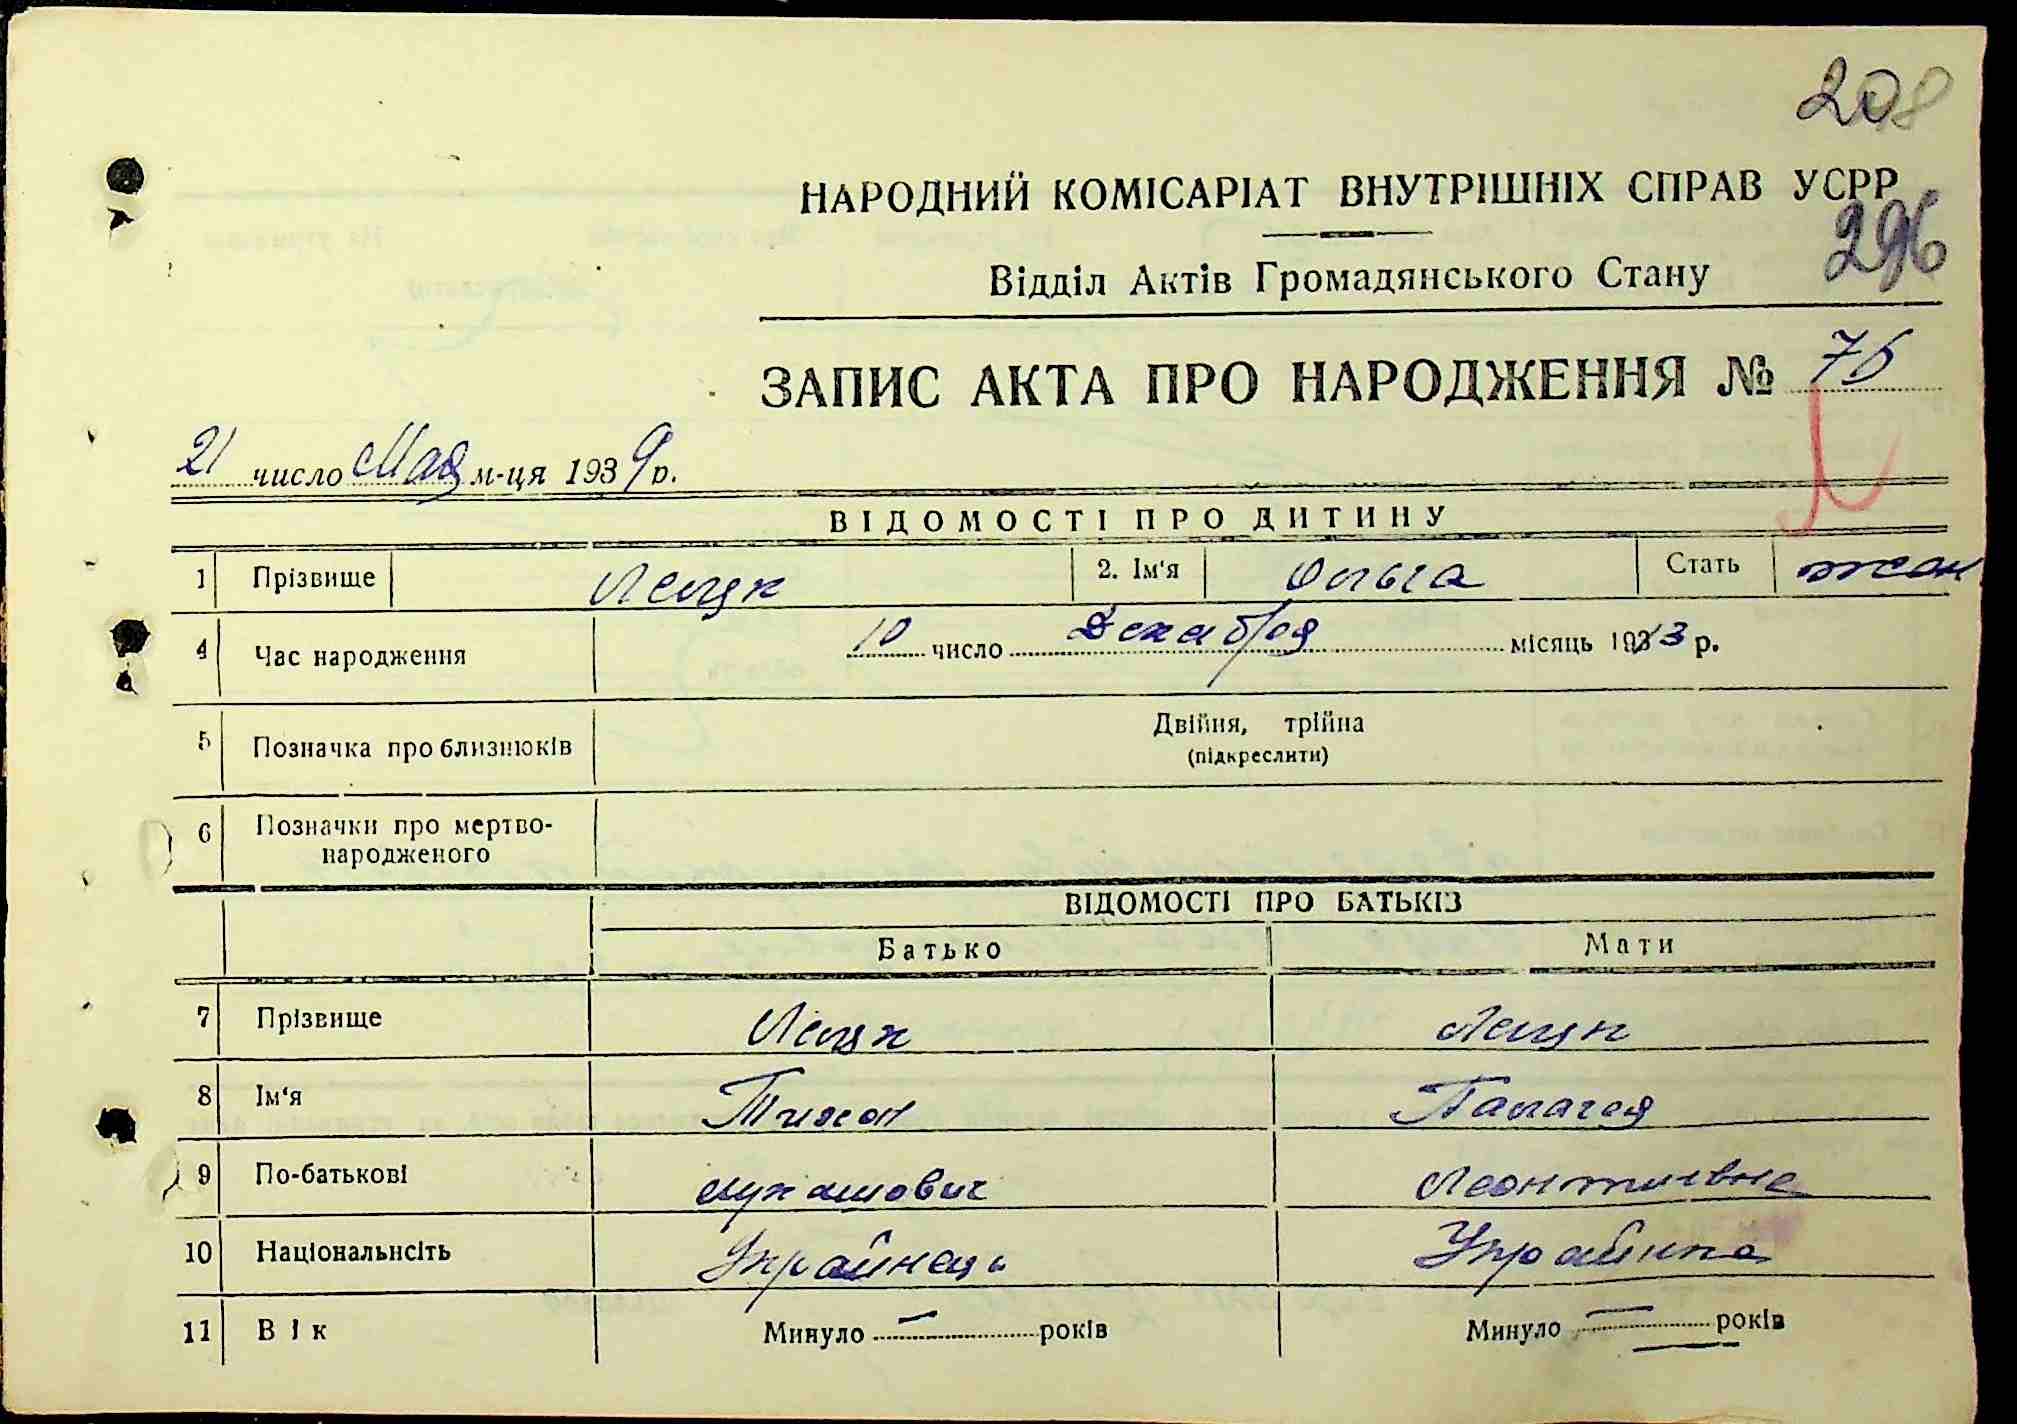 208
НАРОДНИЙ КОМІСАРІАТ ВНУТРІШНІХ СПРАВ УСРР
296
Відділ Актів Громадянського Стану
ЗАПИС АКТА ПРО НАРОДЖЕННЯ № 76
21 число Мая м-ця 1939 р.
ВІДОМОСТІ ПРО ДИТИНУ
1 Прізвище 2. Ім'я Ольга Стать жен
4 Час народження 10 число Декабря місяць 1913 р.
5 Позначка про близнюків Двійня, трійна
(підкреслити)
6 Позначки про мертво-
народженого
ВІДОМОСТІ ПРО БАТЬКІВ
Батько Мати
7 Прізвище
8 Ім'я Тихон Палагея
9 По-батькові Лукашович Леонтиевна
10 Національнсіть Украйнець Украйинка
11 Вік Минуло — років Минуло — років